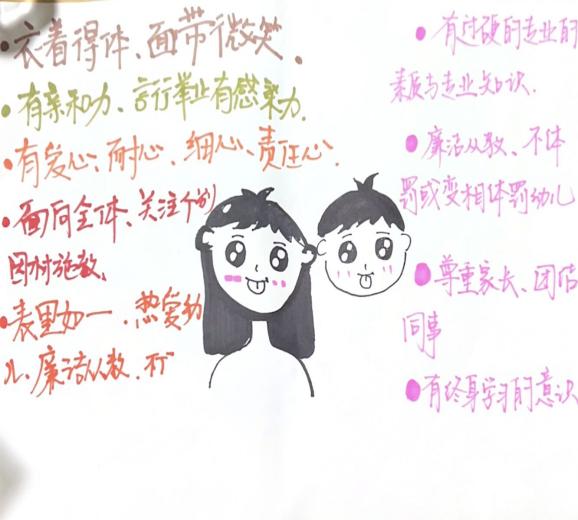 衣着得体、面带微笑.
有亲和力、言行举止有感染力.
有爱心、耐心、细心、责任心.
面向全体、关注个别
因材施教、
表里如一．热爱幼
儿．廉洁从教．不
有过硬的专业的
素质与专业知识.
廉洁从教、不体
罚或变相体罚幼儿
尊重家长、团结
同事
有终身学习的意识